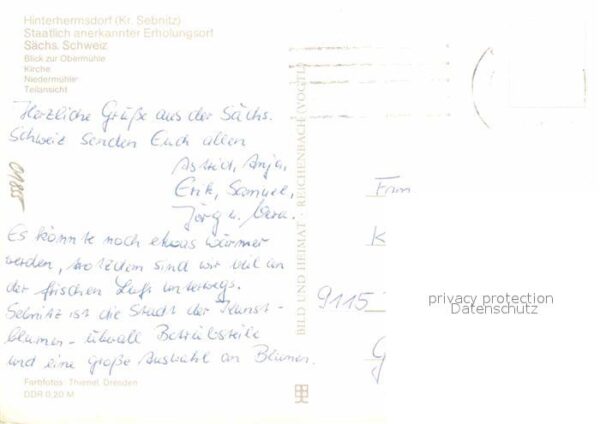 Hinterhermsdorf (Kr. Sebnitz)
Staatlich anerkannter Erholungsort
Sächs. Schweiz
Blick zur Obermühle
Kirche
Niedermühle
Teilansicht
Herzliche Grüße aus der Sächs.
Schweiz senden Euch allen
Astrid, Anja,
Erik, Samuel,
Jörg u. Vera.
Es könnte noch etwas wärmer
werden, trotzdem sind wir viel an
der frischen Luft unterwegs.
Sebnitz ist die Stadt der Kunst-
blumen - überall Betriebsteile
und eine große Auswahl an Blumen.
Farbfotos: Thiemel, Dresden
DDR 0,20 M
BILD UND HEIMAT · REICHENBACH (VOGTL)
01855
Fam
K
9115
G
privacy protection
Datenschutz